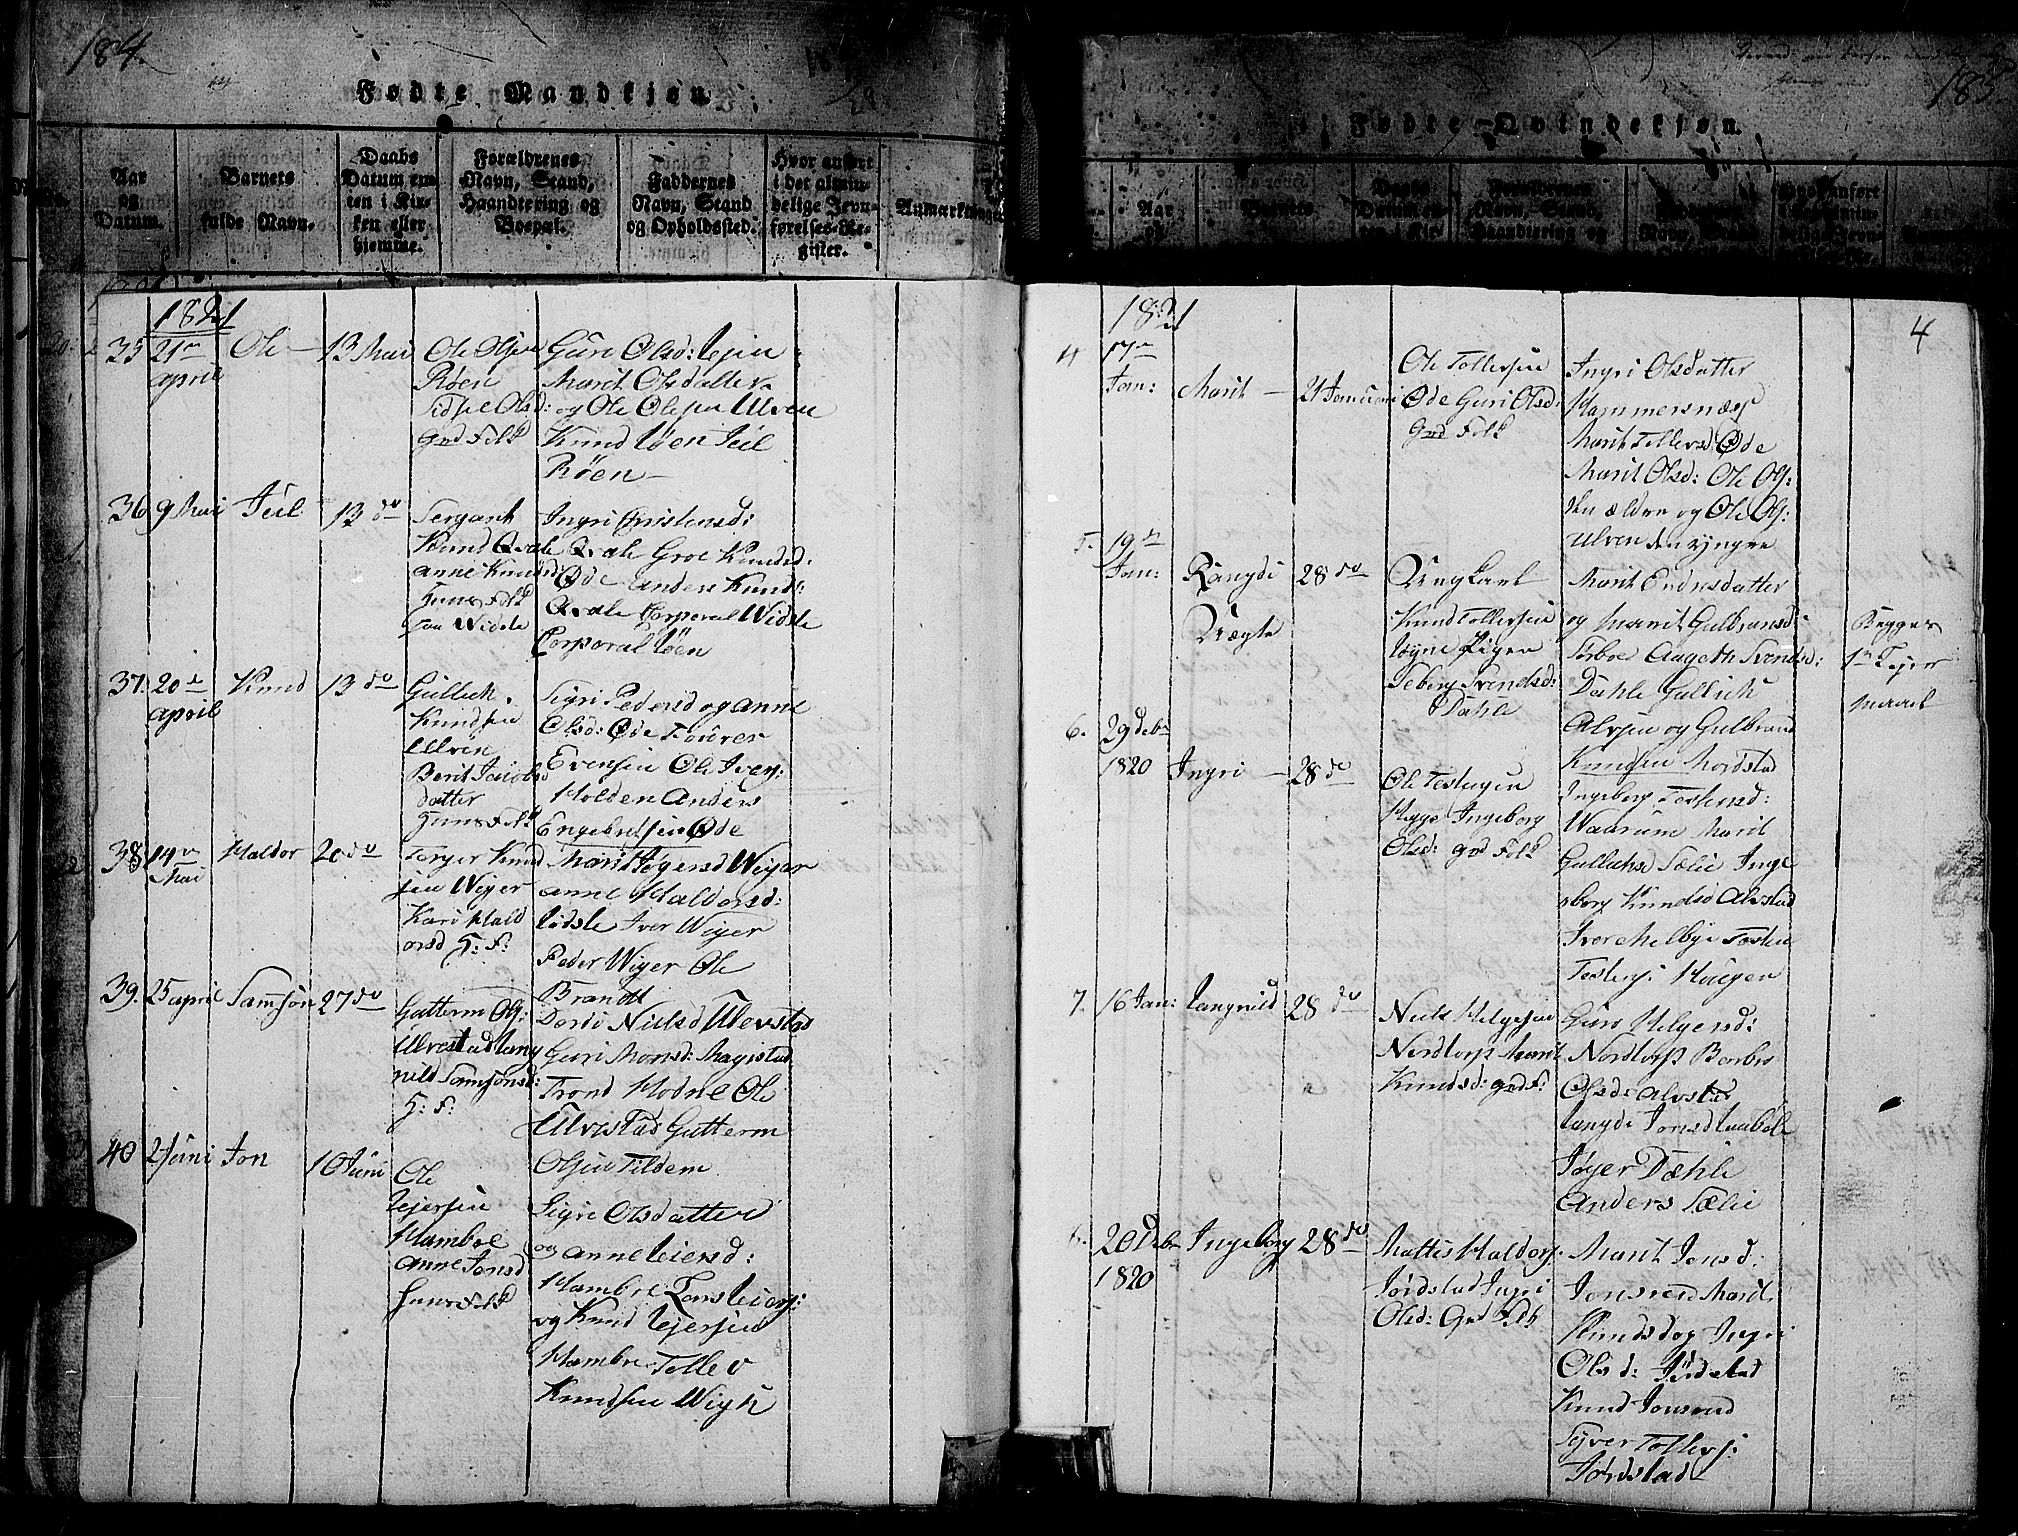 184.
Fødte Mandkjøn.
Aar og Datum.
Barnets fulde Navn.
Daabs Datum enten i Kirken eller hjemme.
Forældrenes Navn, Stand, Haandtering og Boepæl.
Faddernes Navn, Stand og Opholdssted.
Hvor anført i det almindelige Jevnførelses-Register.
Anmærkninger
1821
35 21de april
Ole
13 Mai
Ole Olsen
Røen
Sidsel Olsd:
Grd Folk
Guri Olsd:
Marit Olsdatter
og Ole Olsen Ulven
Knud
Røen
36 9 Mai
Juul
13 do
Sergant
Knud Qvale
Anne Knudsd
Huus Folk
paa Widste
Ingri Christensd:
Qvale Groe Knudsd:
Øde Anders Knuds:
Qvale Corporal Widste
Corporal
37. 20de april
Knud
13 do
Gullick
Knudsen
Ulven
Berit Jacobs
datter
Huus Folk
Sigri Pedersd og Anne
Olsd: Øde
Evensen Ole Ivers:
Holden Anders
Engebretsen Øde
38 14de Mai
Haldor
20 do
Torger Knud
sen Wiger
Kari Hald
orsd H: F:
Marit Wiger
Anne Haldorsd:
Iver Wiger
Peder Wiger Ole
Brandt
39. 25 april
Samson
27 do
Gutterm Ols:
Ulvestad Rang
nild Samsonsd:
H: F:
Dordi Nielsd Ulvestad
Guri Monsd: Magistad
Trond Hodne Ole
Ulvestad Gutterm
Olsen Tildem
40 2 Juni
Jon
10 Juni
Ole
Lejersen
Hambre
Anne Jonsd
Huus Folk
Sigri Olsdatter
og Anne Leiersd:
Hambre Leiers:
og Knud Lejersen
Hambre Tollev
Knudsen Wigh
185.
Fødte Qvindekjøn.
Aar og
Barnets
Datum en-
ten i Kir-
Navn, Stand,
Haandtering og
Navn, Stand
4
1821
4 17de Jan:
Marit
21 Januari
Ole Tollefsen
Øde Guri Olsd:
Grd Folk
Ingri Olsdatter
Hammersnæs
Marit Tollevsd: Øde
Marit Olsd: Ole Ols:
den ældre og Ole Ols:
Ulven den yngre
5. 19de Jan:
Rangdi
Uægte
28 do
Ungkarl
Knud Tollefsen
Pigen
Seberg Svendsd:
Dahle
Marit Endresdatter
og Marit Gulbransd:
Sørboe Aageth Svendsd:
Dahle Gullich
Alvsen og Gulbrand
Knudsen Mordstad
Begges
1te Lejer
maal
6. 29 Debr 1820
Ingri
28 do
Ole Tostensen
Hegge Ingeborg
Olsd: Grd Folk
Ingeborg Tostensd:
Waarum Marit
Gullichsd Sælie Inge
borg Knudsd Alvstad
Iver Melbye Tosten
Tostens: Haugen
7. 16 Jan:
Rangnild
28 do
Niels Helgesen
Nordtorp Marit
Knudsd: Grd F:
Guro Helgesd:
Nordtorp Barbro
Olsd: Alvstad
Rangdi Jonsd
Dæhle
Anders Sælie
20 Debr 1820
Ingeborg
28 do
Mattis Haldors:
Jørdstad Ingri
Olsd: Grd Folk
Marit Jensd:
Jonsrud Marit
Knudsd og Ingri
Olsd: Jørdstad
Knud Jonsrud
Syver Tollefs:
Jørdstad